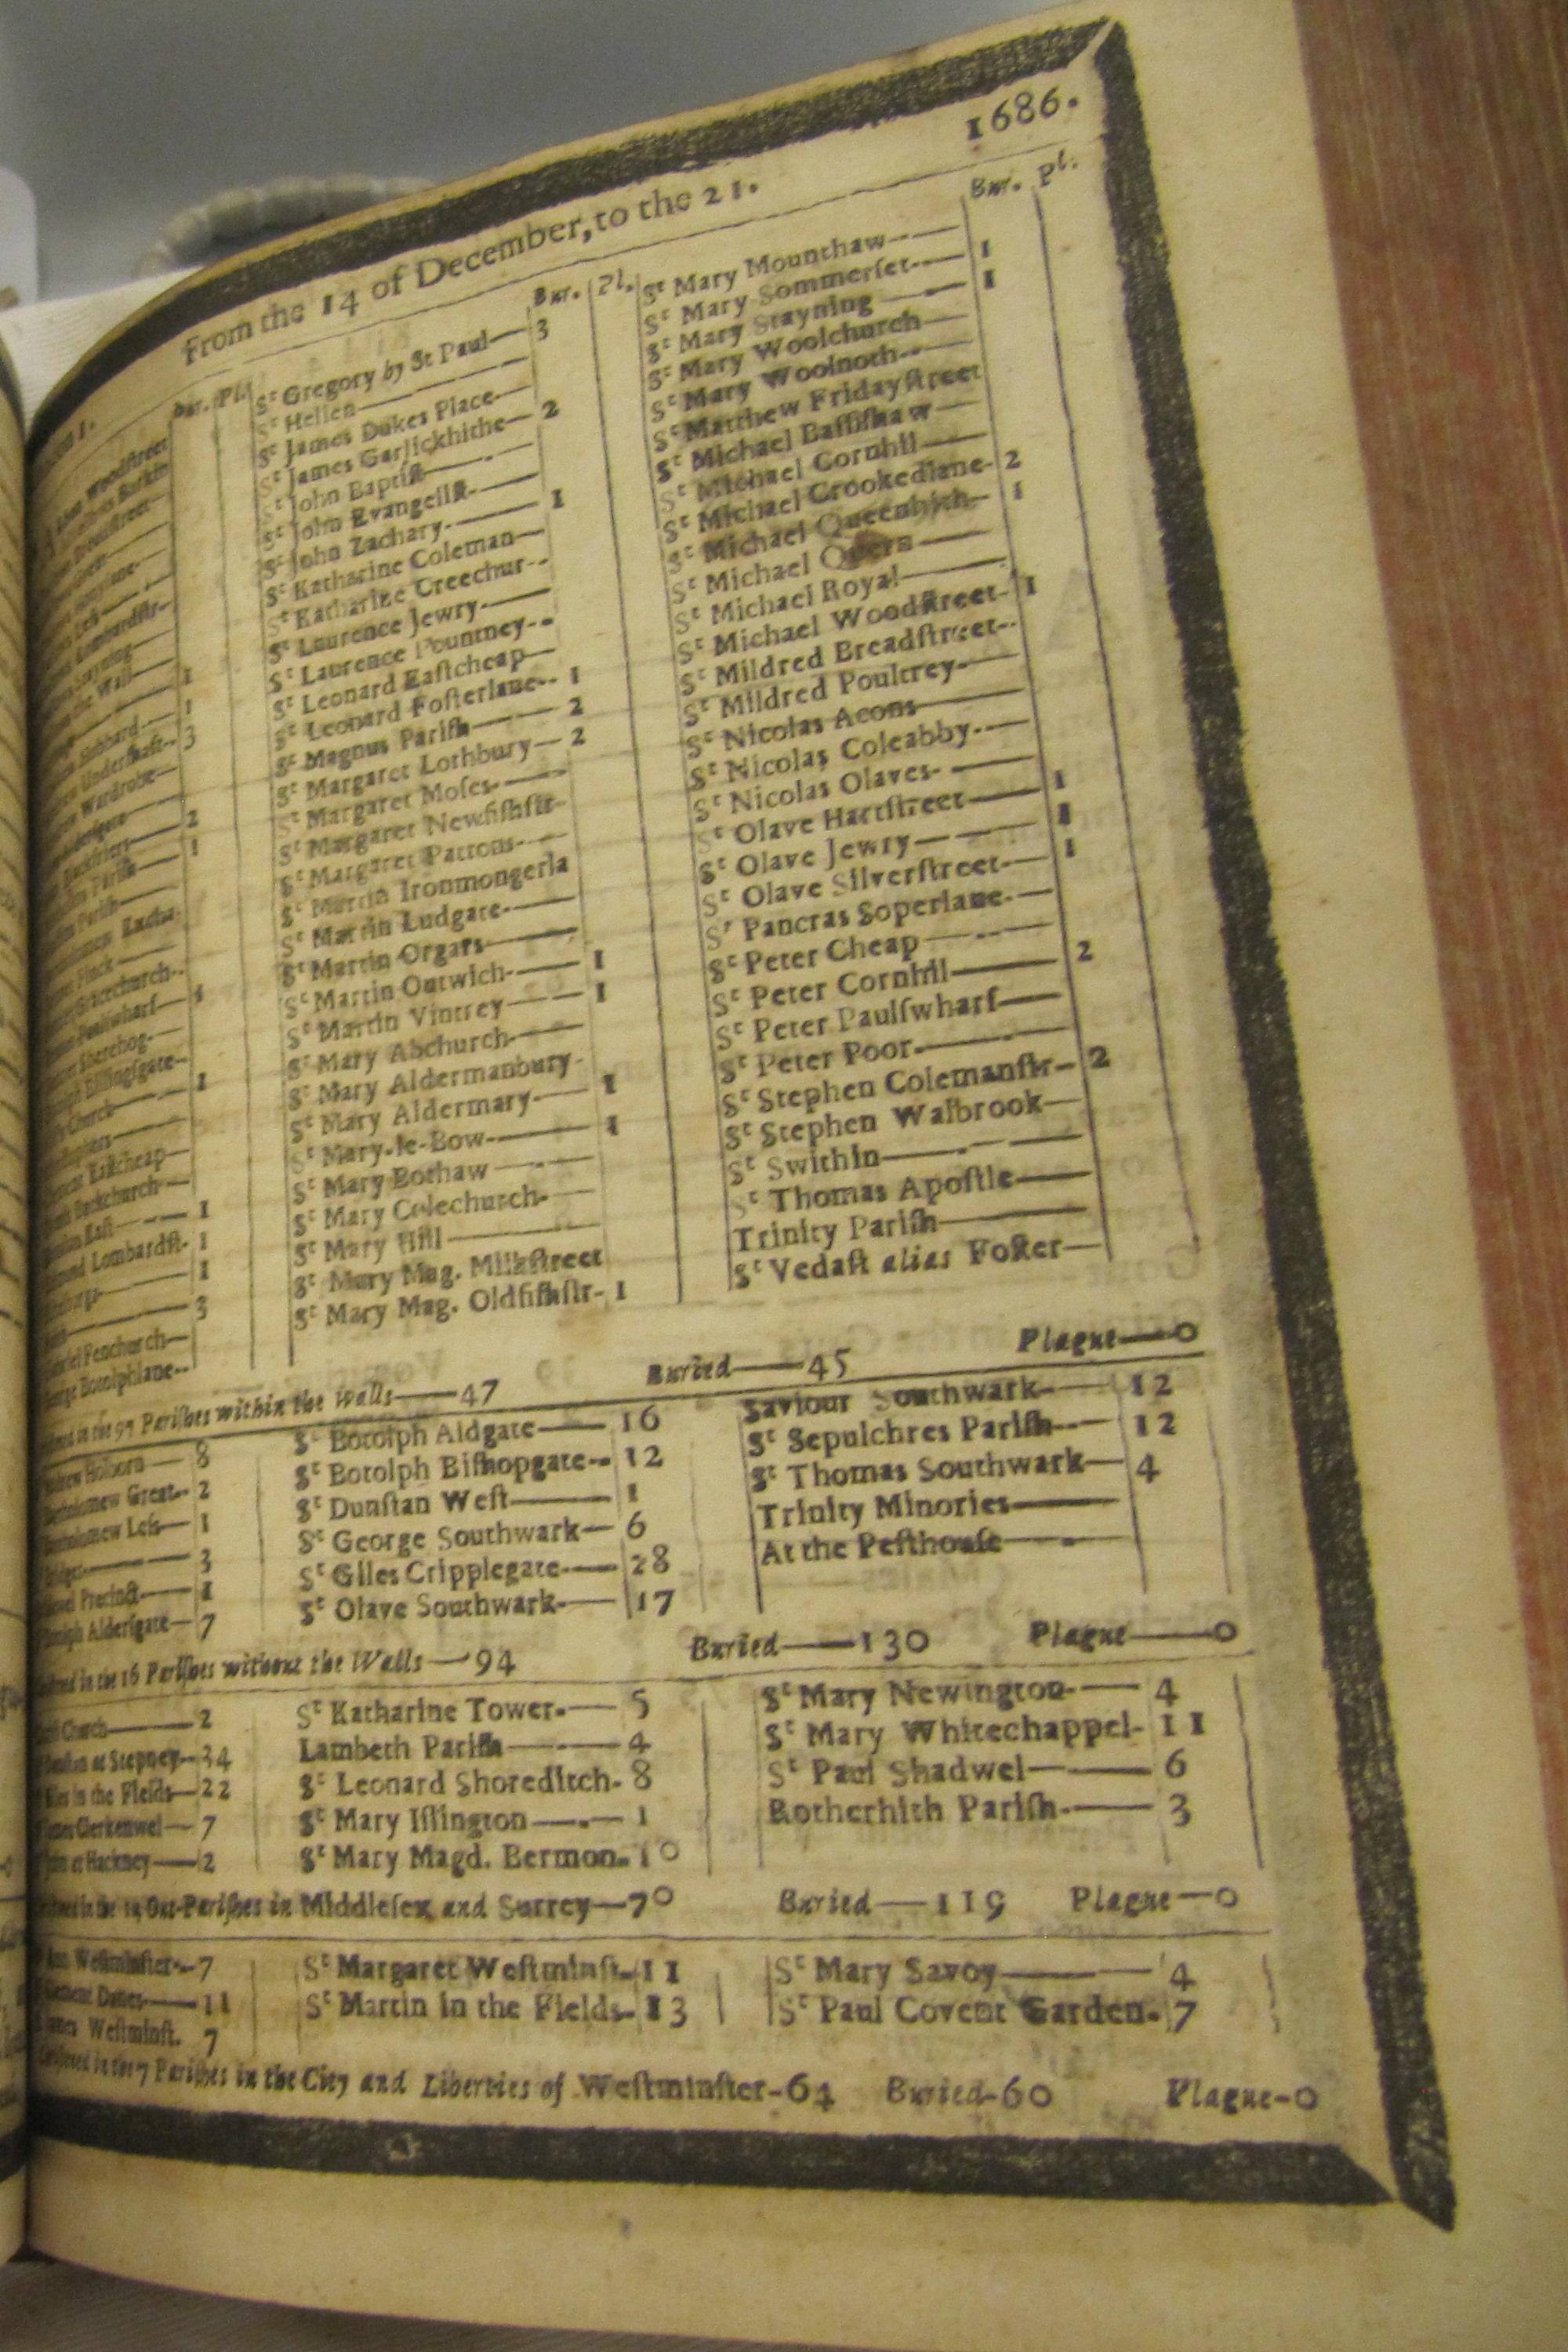 From the 14 of December, to the 21. 1686.
Bur. Pl.
Woodſtreet
Barkin
Lombardſtr-
the Wall
1
Hubbard 1
Underſhaft-- 3
Wardrobe
2
1
Excha
Finck
Gracechurch-
Paulſwharf 1
Sherehog-
Billingſgate-
Church 1
Eaſtcheap
Backchurch
Eaſt 1
Lombardſt- 1
1
3
Fenchurch
Botolphlane--
Bur. Pl.
Sᵗ Gregory by St Paul 3
Sᵗ Hellen
Sᵗ James Dukes Place
Sᵗ James Garlickhithe 2
Sᵗ John Baptiſt
Sᵗ John Evangeliſt
Sᵗ John Zachary 1
Sᵗ Katharine Coleman
Sᵗ Katharine Creechur--
Sᵗ Laurence Jewry
Sᵗ Laurence Pountney--
Sᵗ Leonard Eaſtcheap
Sᵗ Leonard Foſterlane-- 1
Sᵗ Magnus Pariſh 2
Sᵗ Margaret Lothbury 2
Sᵗ Margaret Moſes
Sᵗ Margaret Newfiſhſtr-
Sᵗ Margaret Pattons
Sᵗ Martin Ironmongerla
Sᵗ Martin Ludgate
Sᵗ Martin Orgars
Sᵗ Martin Outwich 1
Sᵗ Martin Vintrey 1
Sᵗ Mary Abchurch
Sᵗ Mary Aldermanbury
Sᵗ Mary Aldermary 1
Sᵗ Mary-le-Bow 1
Sᵗ Mary Bothaw
Sᵗ Mary Colechurch
Sᵗ Mary Hill
Sᵗ Mary Mag. Milkſtreet
Sᵗ Mary Mag. Oldfiſhſtr- 1
Bur. Pl.
Sᵗ Mary Mounthaw
Sᵗ Mary Sommerſet 1
Sᵗ Mary Stayning 1
Sᵗ Mary Woolchurch
Sᵗ Mary Woolnoth
Sᵗ Matthew Fridayſtreet
Sᵗ Michael Baſſiſhaw
Sᵗ Michael Cornhil
Sᵗ Michael Crookedlane- 2
Sᵗ Michael Queenhith 1
Sᵗ Michael Quern
Sᵗ Michael Royal
Sᵗ Michael Woodſtreet- 1
Sᵗ Mildred Breadſtreet--
Sᵗ Mildred Poultrey
Sᵗ Nicolas Acons
Sᵗ Nicolas Coleabby
Sᵗ Nicolas Olaves
Sᵗ Olave Hartſtreet 1
Sᵗ Olave Jewry 1
Sᵗ Olave Silverſtreet 1
Sᵗ Pancras Soperlane
Sᵗ Peter Cheap
Sᵗ Peter Cornhil 2
Sᵗ Peter Paulſwharf
Sᵗ Peter Poor
Sᵗ Stephen Colemanſtr- 2
Sᵗ Stephen Walbrook
Sᵗ Swithin
Sᵗ Thomas Apoſtle
Trinity Pariſh
Sᵗ Vedaſt alias Foſter
in the 97 Pariſhes within the Walls—47 Buried—45 Plague—0
Holborn — 8
Bartholomew Great-- 2
Bartholomew Leſs 1
3
Precinct 1
Alderſgate 7
Sᵗ Botolph Aldgate 16
Sᵗ Botolph Biſhopgate-- 12
Sᵗ Dunſtan Weſt 1
Sᵗ George Southwark 6
Sᵗ Giles Cripplegate 28
Sᵗ Olave Southwark 17
Saviour Southwark 12
Sᵗ Sepulchres Pariſh 12
Sᵗ Thomas Southwark 4
Trinity Minories
At the Peſthouſe
in the 16 Pariſhes without the Walls—94 Buried—130 Plague—0
Church 2
at Stepney-- 34
in the Fields 22
Clerkenwel 7
at Hackney 2
Sᵗ Katharine Tower 5
Lambeth Pariſh 4
Sᵗ Leonard Shoreditch- 8
Sᵗ Mary Iſlington 1
Sᵗ Mary Magd. Bermon. 10
Sᵗ Mary Newington 4
Sᵗ Mary Whitechappel- 11
Sᵗ Paul Shadwel 6
Rotherhith Pariſh 3
in the 14 Out-Pariſhes in Middleſex and Surrey—70 Buried—119 Plague—0
Weſtminſter-- 7
Clement Danes 11
Weſtminſt. 7
Sᵗ Margaret Weſtminſt- 11
Sᵗ Martin in the Fields- 13
Sᵗ Mary Savoy 4
Sᵗ Paul Covent Garden. 7
in the 7 Pariſhes in the City and Liberties of Weſtminſter-64 Buried-60 Plague-0